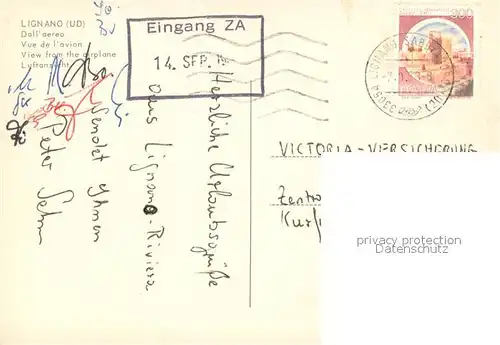 LIGNANO (UD)
Dall'aereo
Vue de l'avion
View from the airplane
Luftansicht
Eingang ZA
14. SEP.
300
LIGNANO SABB
33054
Herzliche Urlaubsgrüße
aus Lignano-Riviera
sendet Ihnen
Peter
VICTORIA-VERSICHERUNG
Zentr
Kurf
privacy protection
Datenschutz